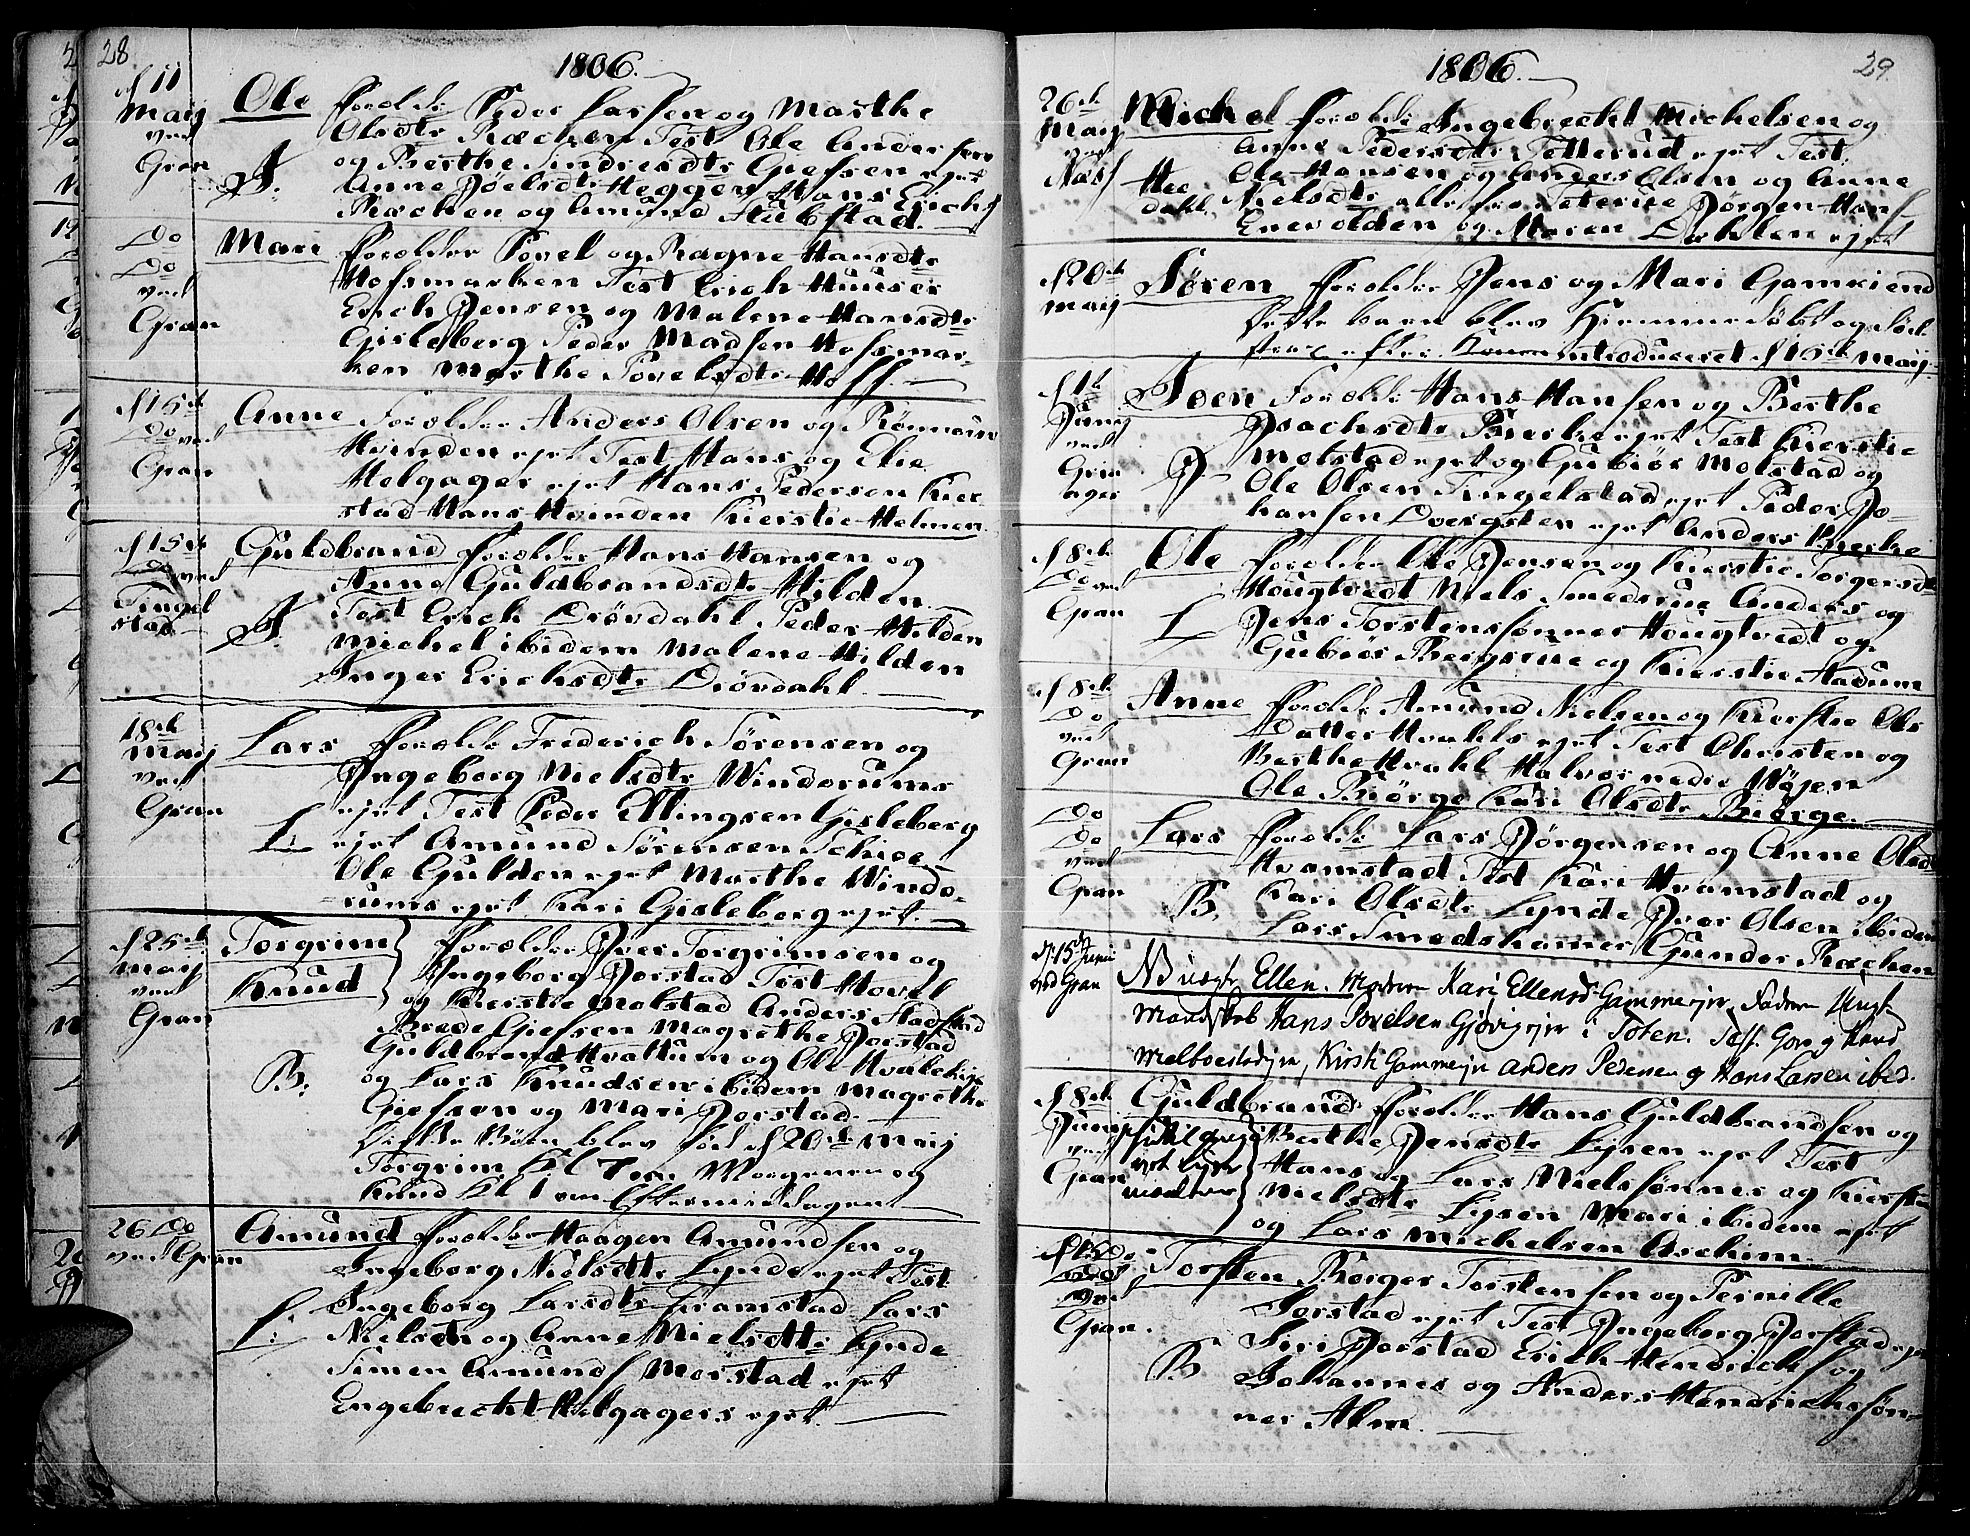 28
1806.
d 11
Maij
ved
Gran
Ole Forældr: Peder Larsen og Marthe
Olsdtr Ræcken Test Ole Andersen
og Berthe Sindresdtr Giefsen ejet
Anne Joelsdtr Heggen Hans Erichs
Ræcken og Amund Stabstad.
Do
Do
ved
Gran
Mari Forælder Povel og Ragne Hansdtr
Hofsmarken Test Erich Huuser
Erich Jensen og Malene Hansdtr
Gisleberg Peder Madsen Hofsmar-
ken Marthe Povelsdtr Hoff.
d 15de
Do ved
Gran
Anne Forælder Anders Olsen og Rønnaug
Hvinden ejet Test Hans og Elie
Helgager ejet Hans Pedersen
stad Hans Hvinden Kierstie Helmen.
d 15de
Do ved
Tingel
stad
Guldbrand Forælder Hans Hansen og
Anne Guldbrandsdtr Hilden
Test Erich Drövdahl Peder Hilden
Michel ibidem Malene Hilden
Inger Erichsdtr Drövdahl
18de
Maij
ved
Gran
Lars Forældr Frederich Sörensen og
Ingeborg Nielsdtr Windorums
ejet Test Peder Ellingsen Gisleberg
L: ejet Amund Sörensen
Ole Gulden ejet Marthe Windo-
rums ejet Kari Gisleberg ejet.
d 25de
Maij
ved
Gran
Torgrim
Knud
Forælder Iver Torgrimsen og
Ingeborg Jorstad Test Hovel
og Kierstie Molstad Anders Stadstad
Brede Giefsen Magrethe Jorstad
Guldbrand Hvattum og Ole Hvaleby
B: og Lars Knudsen ibidem Magrethe
Giefsen og Mari Jorstad.
Disse Börn blev föd d 20de Maij
Torgrim Kl 7 om Morgenen og
Knud Kl 1 om Eftermiddagen
26 Do
ved Gran
Amund Forælder Haagen Amundsen og
Ingeborg Nielsdtr Lynde ejet Test
L: Ingeborg Larsdtr Framstad Lars
Nielsen og Anne Nielsdtr Lynde
Simen Amunds Morstad ejet
Engebrecht Helgagers ejet.
29.
1806.
26de
Maij
ved
Næs
Michel Forældr Ingebrecht Michelsen og
Anne Pedersdtr Tetterud ejet Test
Ole Hansen og Anders Olsen og Anne
Hee
dahl. Nielsdtr alle Jörgen Han
Enevolden og Maren Dahlen ejet
d 20de
Maij
Sören Forælder Jens og Mari Gamkiend
Dette barn blev Hiemme Döbt og död
strax efter Konen introduceret d 15de Maij.
d 1te
Junij
ved
Grin
ager
Joen Forældr Hans Hansen og Berthe
Isachsdtr Brerke ejet Test Kierstie
Molstad ejet og Gubiör Molstad og
Ole Olsen Tingelstad ejet Peder Jo-
hansen Dvergsten ejet Anders Brerke
d 8de
Do ved
Gran
Ole Forælder Ole Jensen og Kierstie Torgersdtr
Hougtvedt Niels Smedsrue Anders og
L Jens Torstenssönner Hougtvedt og
Gubiör Bergsrue og Kierstie Stadum
d 8de
Do
ved
Gran
Anne Forældr Amund Nielsen og Kierstie Ols
Datter Hvahls ejet Test Christen og
Berthe Hvahl Halvor nedre Wöjen
Ole Biörge Kari Olsdtr Biörge.
Do
Do
ved
Gran
Lars Forældr Lars Jörgensen og Anne Olsdtr
Hvamstad Test Kari Hvamstad og
B. Kari Olsdtr Lynde Iver Olsen ibidem
Lars Smedshammer Gunder Ræcken
d. 15de Junii
ved Gran
NB Uægte Ellen. Moderen Kari Ellensd. Gammeejer, Faderen Ungt
Mandskab Hans Povelsen Gjövigejer i Toten. Test. Gore og Knud
Melboestadejer, Kirsti Gammeejer Anders Pedersen og Hans Larsen ibid.
d 8de
Junij
ved
Gran
Guldbrand Forælder Hans Guldbrandsen og
Berthe Jensdtr Lysen ejet Test
Hans og Lars Nielssönner og Kierstie
Nielsdtr Lysen Mari ibidem ejet
og Lars Michelsen Aschim.
d 15 Do
ved
Gran.
Torsten Borger Torstensen og Pernille
Jorstad ejet Test Ingeborg Jorstad ejet
B Siri Jorstad Erich Hendrichs og
Johannes og Anders Hendrichssön-
ner Alm.